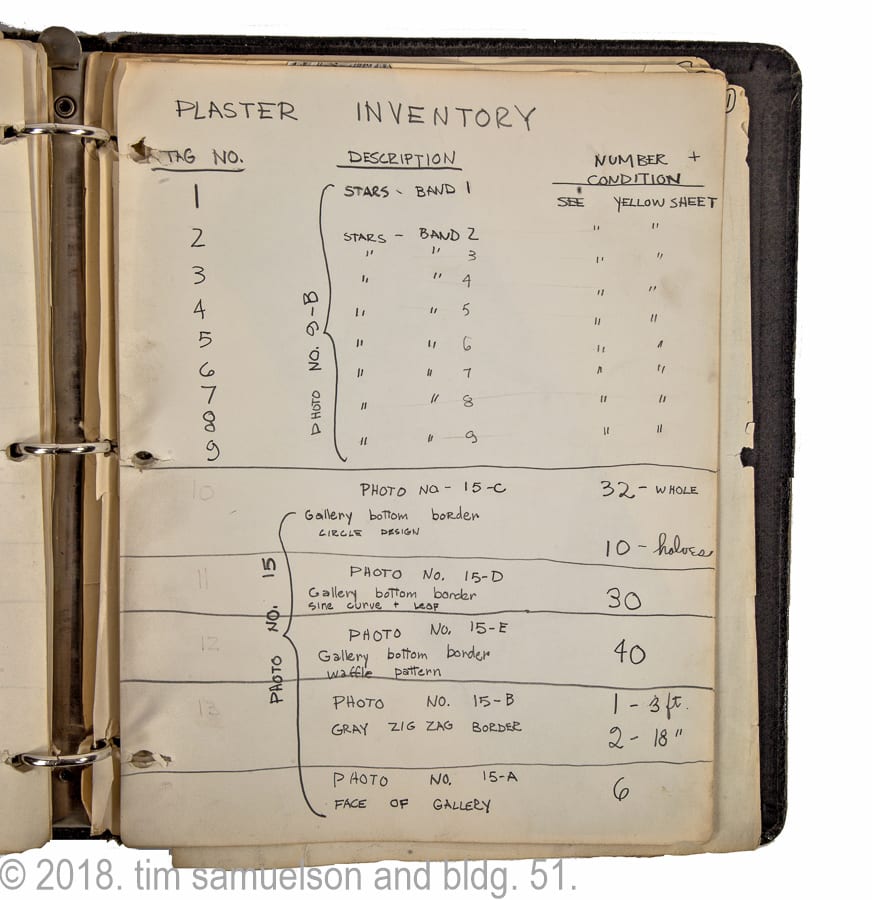 PLASTER INVENTORY
TAG NO. DESCRIPTION NUMBER + CONDITION
1 STARS - BAND 1 SEE YELLOW SHEET
2 STARS - BAND 2 " "
3 " " 3 " "
4 " " 4 " "
5 " " 5 " "
6 " " 6 " "
7 " " 7 " "
8 " " 8 " "
9 " " 9 " "
PHOTO NO. 9-B
10 PHOTO NO - 15-C 32 - WHOLE
Gallery bottom border
CIRCLE DESIGN
10 - halves
11 PHOTO NO. 15-D
Gallery bottom border 30
sine curve + leaf
12 PHOTO NO. 15-E
Gallery bottom border 40
waffle pattern
13 PHOTO NO. 15-B 1 - 3 ft.
GRAY ZIG ZAG BORDER 2 - 18"
PHOTO NO. 15-A 6
FACE OF GALLERY
PHOTO NO. 15
© 2018. tim samuelson and bldg. 51.